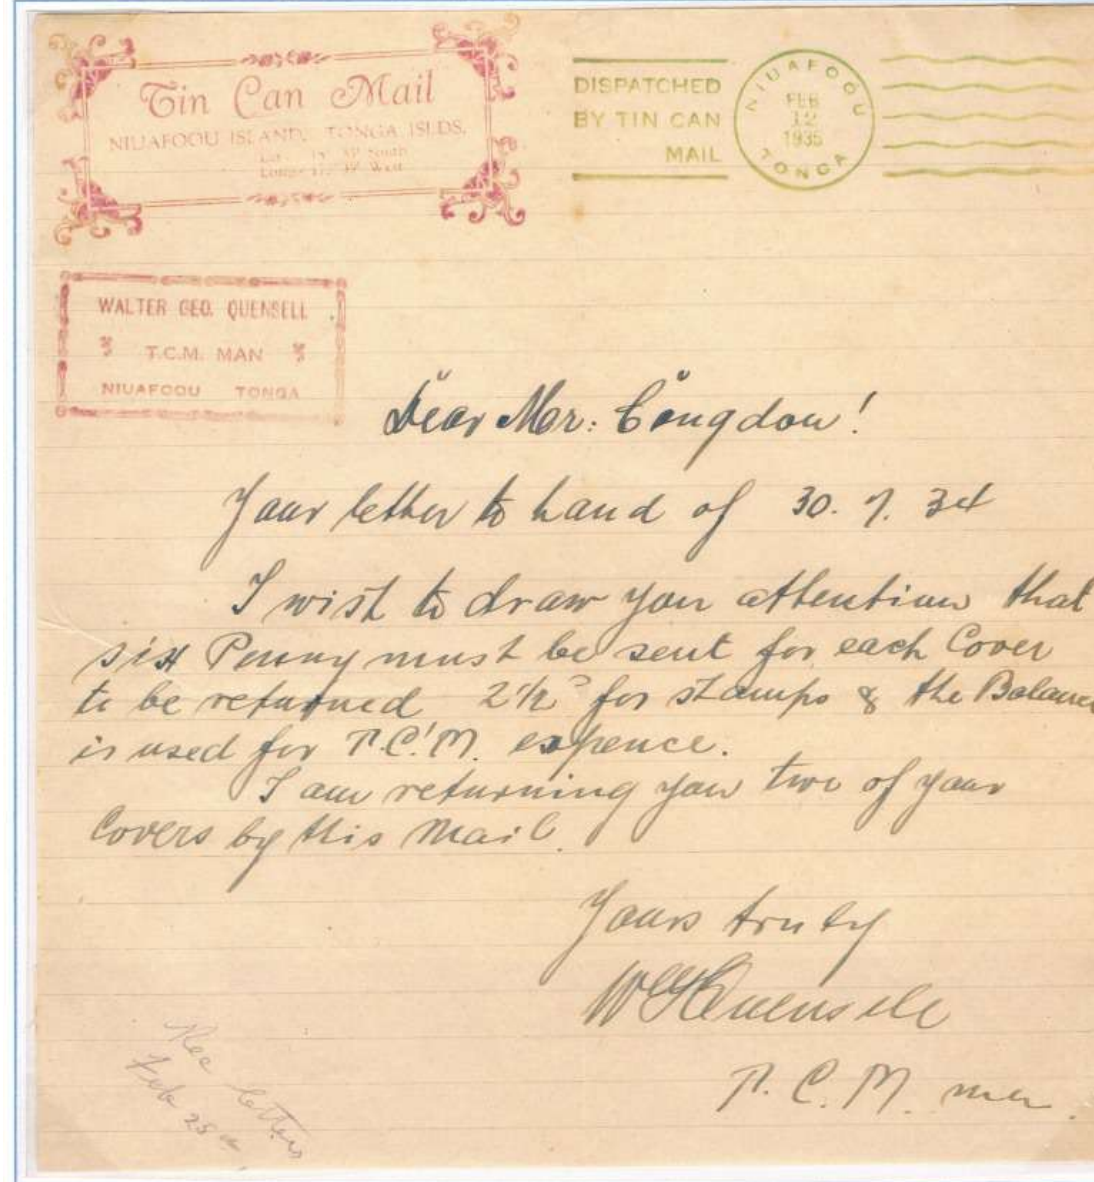 Tin Can Mail
NIUAFOOU ISLAND, TONGA ISLDS.
South
West
DISPATCHED
BY TIN CAN
MAIL
NIUAFOOU
FEB
12
1935
TONGA
WALTER GEO. QUENSELL
T.C.M. MAN
NIUAFOOU TONGA
Dear Mr: Congdon!
Your letter to hand of 30. 7. 34
I wish to draw your attention that
six Penny must be sent for each Cover
to be returned 2½ᴰ for stamps & the Balance
is used for T.C.M. expence.
I am returning you two of your
Covers by this Mail.
Yours truly
WGQuensell
T. C. M. man.
Rec letters
Feb 25